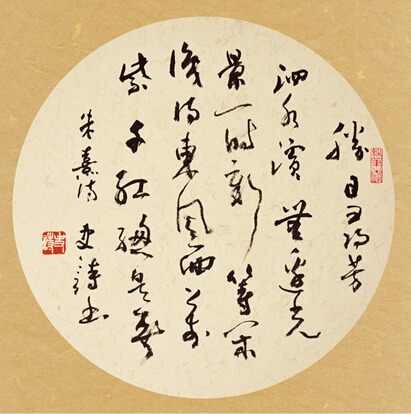 勝日尋芳
泗水濱無邊光
景一時新等閒
識得東風面万
紫千紅總是春
朱熹詩
書